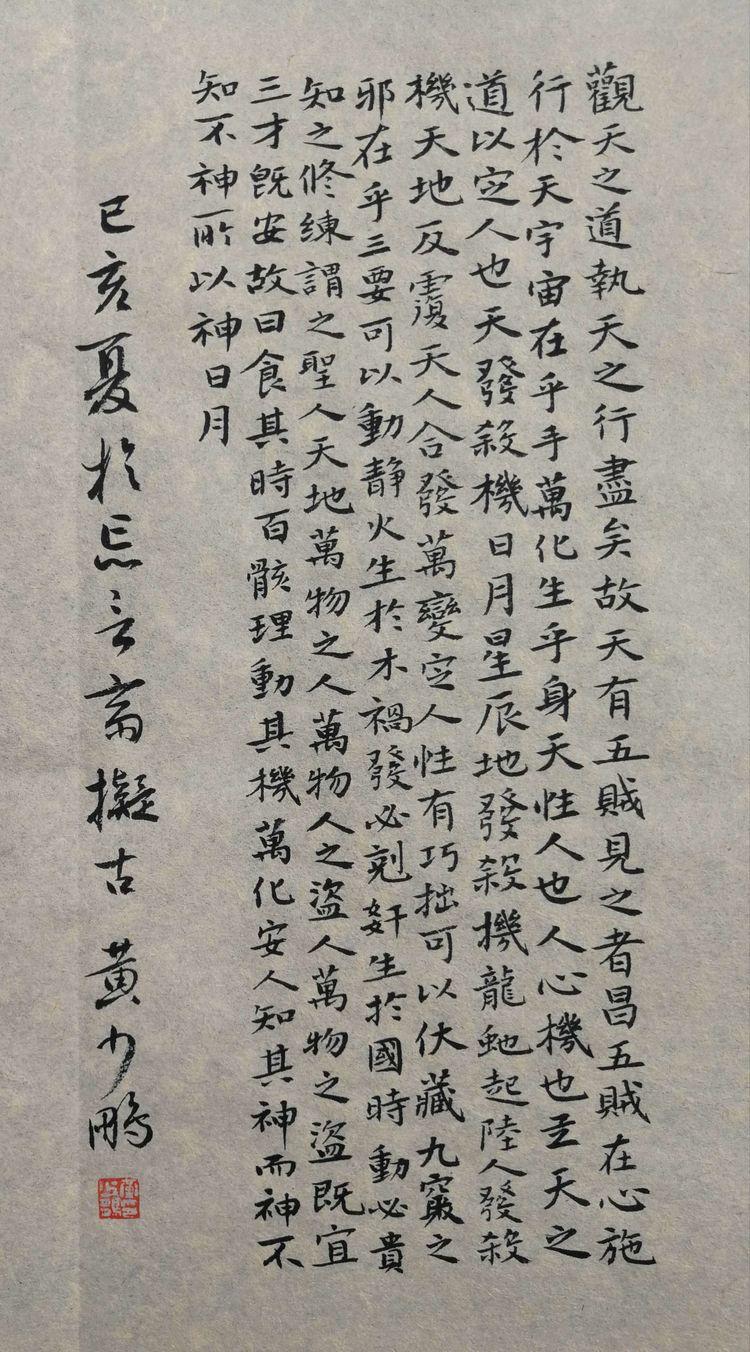 觀天之道執天之行盡矣故天有五賊見之者昌五賊在心施
行於天宇宙在乎手萬化生乎身天性人也人心機也立天之
道以定人也天發殺機日月星辰地發殺機龍虵起陸人發殺
機天地反覆天人合發萬變定人性有巧拙可以伏藏九竅之
邪在乎三要可以動静火生於木禍發必剋姧生於國時動必貴
知之修練謂之聖人天地萬物之人萬物人之盜人萬物之盜既宜
三才既安故曰食其時百骸理動其機萬化安人知其神而神不
知不神所以神日月
己亥夏於忘言斋擬古 黄少鵬